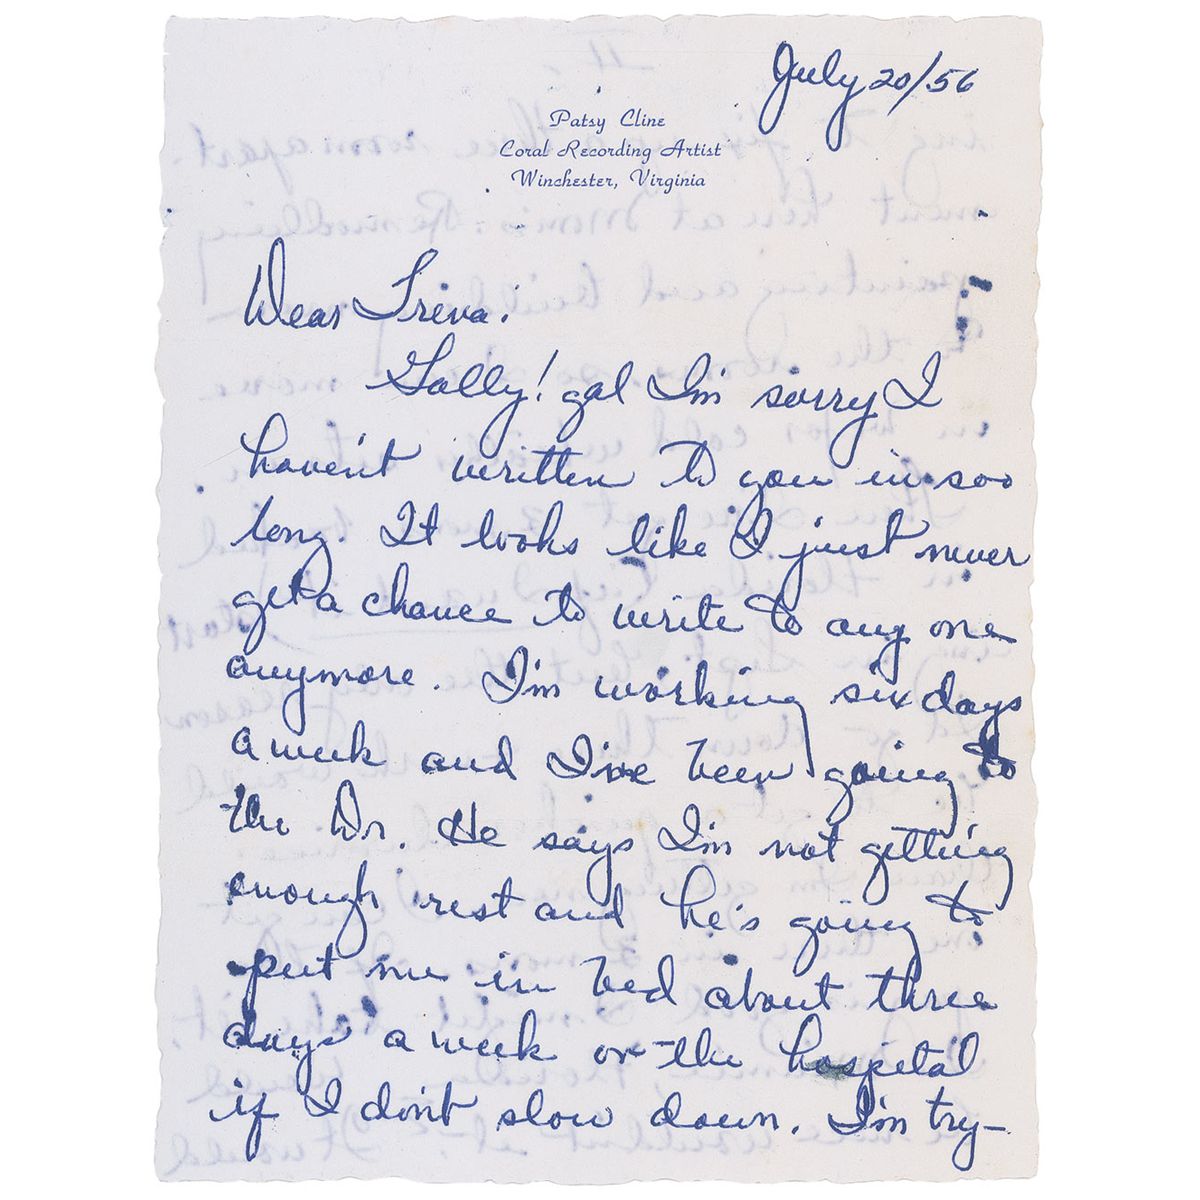 July 20/56
Patsy Cline
Coral Recording Artist
Winchester, Virginia
Dear Treva:
Golly! gal I'm sorry I
haven't written to you in soo
long. It looks like I just never
get a chance to write to any one
anymore. I'm working six days
a week and I've been going to
the Dr. He says I'm not getting
enough rest and he's going to
put me in bed about three
days a week or the hospital
if I don't slow down. I'm try-